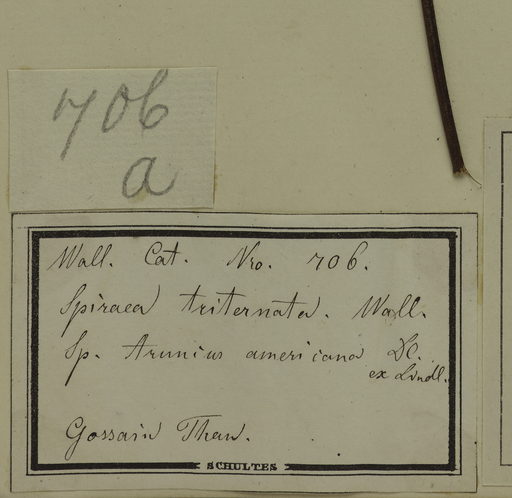 706
a
Wall. Cat. Nro. 706.
Spiraea triternata. Wall.
Sp. Aruncus americana DC.
ex Lindl.
Gossain Than.
SCHULTES